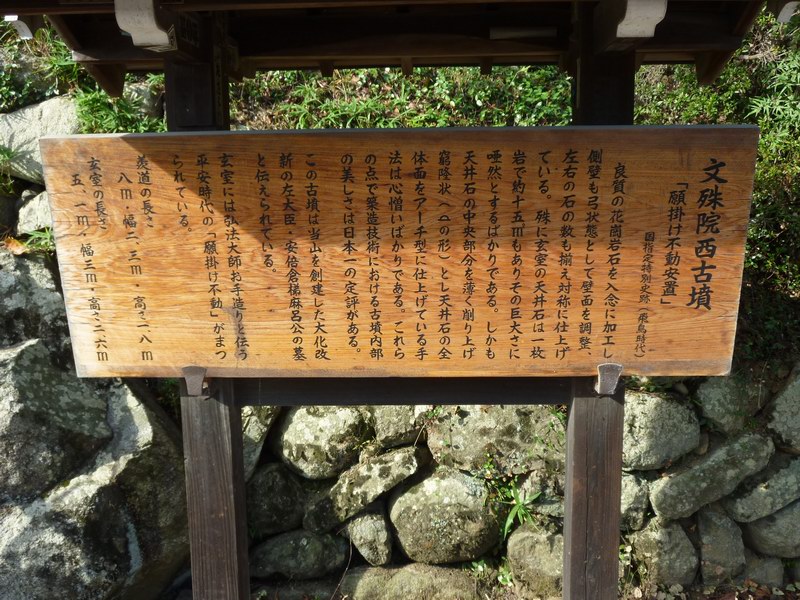 文殊院西古墳
「願掛け不動安置」
国指定特別史跡(飛鳥時代)
良質の花崗岩石を入念に加工し
側壁も弓状態として壁面を調整、
左右の石の数も揃え対称に仕上げ
ている。殊に玄室の天井石は一枚
岩で約十五㎡もありその巨大さに
唖然とするばかりである。しかも
天井石の中央部分を薄く削り上げ
窮隆状(∩の形)とし天井石の全
体面をアーチ型に仕上げている手
法は心憎いばかりである。これら
の点で築造技術における古墳内部
の美しさは日本一の定評がある。
この古墳は当山を創建した大化改
新の左大臣・安倍倉梯麻呂公の墓
と伝えられている。
玄室には弘法大師お手造りと伝う
平安時代の「願掛け不動」がまつ
られている。
羨道の長さ
八m・幅二、三m・高さ一、八m
玄室の長さ
五、一m・幅三m・高さ二、六m